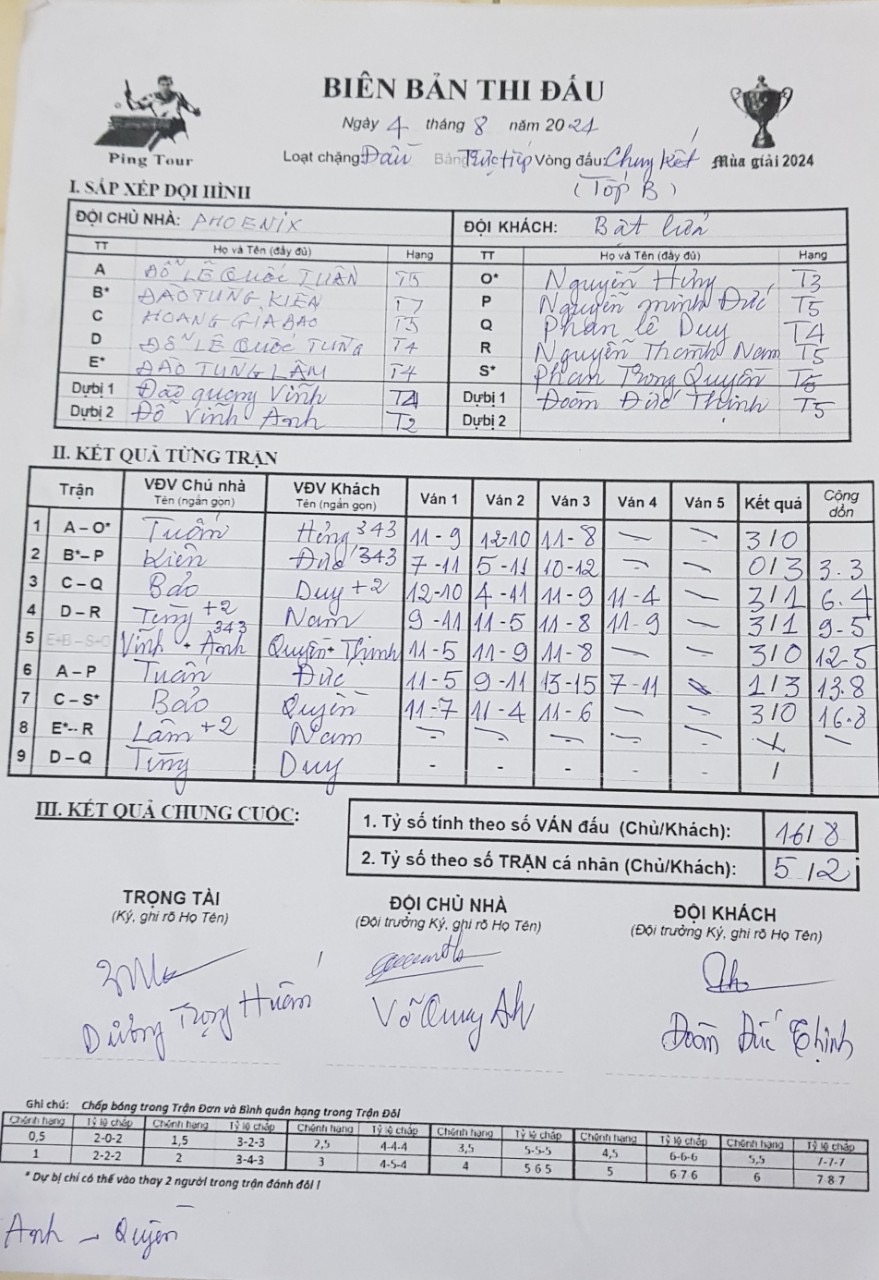 BIÊN BẢN THI ĐẤU
Ngày 4 tháng 8 năm 2024
Ping Tour
Loạt chặng: Đấu Bảng Trực tiếp Vòng đấu: Chung kết
Mùa giải 2024
(Tốp B)
I. SẮP XẾP ĐỘI HÌNH
ĐỘI CHỦ NHÀ: PHOENIX ĐỘI KHÁCH: Bất
TT Họ và Tên (đầy đủ) Hạng TT Họ và Tên (đầy đủ) Hạng
A ĐỖ LÊ QUỐC TUẤN T5 O* Nguyễn Hưng T3
B* ĐÀO TÙNG KIÊN T7 P Nguyễn minh Đức T5
C HOÀNG GIA BẢO Q Phan lê Duy T4
D ĐỖ LÊ QUỐC TÙNG T4 R Nguyễn Thành Nam T5
E* ĐÀO TÙNG LÂM T4 S* Phan Trọng Quyền
Dự bị 1 Đào quang Vinh T4 Dự bị 1 Đoàn Đức Thịnh T5
Dự bị 2 Đỗ Vinh Anh T2 Dự bị 2
II. KẾT QUẢ TỪNG TRẬN
Trận VĐV Chủ nhà Tên (ngắn gọn) VĐV Khách Tên (ngắn gọn) Ván 1 Ván 2 Ván 3 Ván 4 Ván 5 Kết quả Cộng dồn
1 A – O* Tuấn Hưng 343 11-9 12-10 11-8 - - 3/0
2 B* – P Kiên Đức 343 7-11 5-11 10-12 - - 0/3 3.3
3 C – Q Bảo Duy +2 12-10 4-11 11-9 11-4 - 3/1 6.4
4 D – R Tùng +2 Nam 9-11 11-5 11-8 11-9 - 3/1 9-5
5 E+B – S+O Vinh + Anh 343 Quyền + Thịnh 11-5 11-9 11-8 - - 3/0 12-5
6 A – P Tuấn Đức 11-5 9-11 13-15 7-11 1/3 13.8
7 C – S* Bảo Quyền 11-7 11-4 11-6 - - 3/0 16.8
8 E* - R Lâm +2 Nam - - - - - -
9 D – Q Tùng Duy - - - - - /
III. KẾT QUẢ CHUNG CUỘC:
1. Tỷ số tính theo số VÁN đấu (Chủ/Khách): 16/8
2. Tỷ số theo số TRẬN cá nhân (Chủ/Khách): 5/2
TRỌNG TÀI ĐỘI CHỦ NHÀ ĐỘI KHÁCH
(Ký, ghi rõ Họ Tên) (Đội trưởng Ký, ghi rõ Họ Tên) (Đội trưởng Ký, ghi rõ Họ Tên)
Dương Trọng Huấn Võ Quang Anh Đoàn Đức Thịnh
Ghi chú: Chấp bóng trong Trận Đơn và Bình quân hạng trong Trận Đôi
Chênh hạng Tỷ lệ chấp Chênh hạng Tỷ lệ chấp Chênh hạng Tỷ lệ chấp Chênh hạng Tỷ lệ chấp Chênh hạng Tỷ lệ chấp Chênh hạng Tỷ lệ chấp
0,5 2-0-2 1,5 3-2-3 2,5 4-4-4 3,5 5-5-5 4,5 6-6-6 5,5 7-7-7
1 2-2-2 2 3-4-3 3 4-5-4 4 5 6 5 5 6 7 6 6 7 8 7
* Dự bị chỉ có thể vào thay 2 người trong trận đánh đôi !
Anh - Quyền